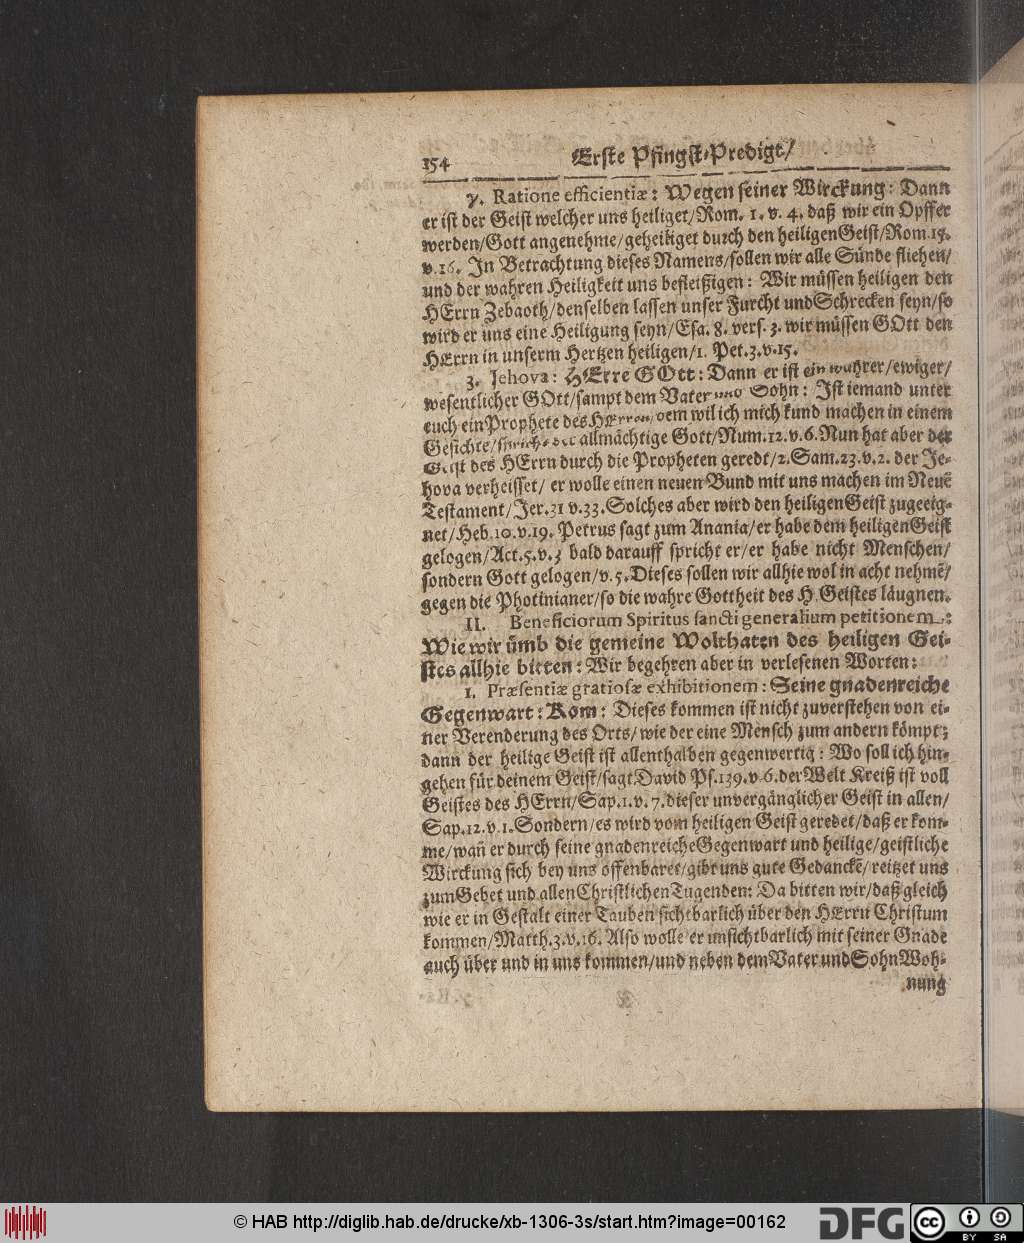 154 Erste Pfingst-Predigt/
7. Ratione efficientiæ: Wegen seiner Wirckung: Dann
er ist der Geist welcher uns heiliget/Rom. 1. v. 4. daß wir ein Opffer
werden/Gott angenehme/geheiliget durch den heiligen Geist/Rom 15.
v. 16. In Betrachtung dieses Namens/sollen wir alle Sünde fliehen/
und der wahren Heiligkeit uns befleißigen: Wir müssen heiligen den
HErrn Zebaoth/denselben lassen unser Furcht und Schrecken seyn/so
wird er uns eine Heiligung seyn/Esa. 8. vers. 3. wir müssen GOtt den
HErrn in unserm Hertzen heiligen/1. Pet.3.v.15.
3. Jehova: HErre GOtt: Dann er ist ein wahrer/ewiger/
wesentlicher GOtt/sampt dem Vater und Sohn: Ist iemand unter
euch ein Prophete des HErren/dem wil ich mich kund machen in einem
Gesichte/spricht der allmächtige Gott/Num.12.v.6. Nun hat aber der
Geist des HErrn durch die Propheten geredt/2. Sam.23.v.2. der Je-
hova verheisset/ er wolle einen neuen Bund mit uns machen im Neuē
Testament/Jer.31 v.33. Solches aber wird den heiligen Geist zugeeig-
net/Heb.10.v.19. Petrus sagt zum Anania/er habe dem heiligen Geist
gelogen/Act.5.v.3 bald darauff spricht er/er habe nicht Menschen/
sondern Gott gelogen/v.5. Dieses sollen wir allhie wol in acht nehmē/
gegen die Photinianer/so die wahre Gottheit des H. Geistes läugnen.
II. Beneficiorum Spiritus sancti generalium petitionem:
Wie wir ümb die gemeine Wolthaten des heiligen Gei-
stes allhie bitten: Wir begehren aber in verlesenen Worten:
1. Præsentiæ gratiosæ exhibitionem: Seine gnadenreiche
Gegenwart: Kom: Dieses kommen ist nicht zuverstehen von ei-
ner Verenderung des Orts/ wie der eine Mensch zum andern kömpt;
dann der heilige Geist ist allenthalben gegenwertig: Wo soll ich hin-
gehen für deinem Geist/sagt David Ps.139.v.6. der Welt Kreiß ist voll
Geistes des HErrn/Sap.1.v.7. dieser unvergänglicher Geist in allen/
Sap.12.v.1. Sondern/es wird vom heiligen Geist geredet/daß er kom-
me/wañ er durch seine gnadenreiche Gegenwart und heilige/geistliche
Wirckung sich bey uns offenbaret/gibt uns gute Gedanckē/reitzet uns
zum Gebet und allen Christlichen Tugenden: Da bitten wir/daß gleich
wie er in Gestalt einer Tauben sichtbarlich über den HErrn Christum
kommen/Matth.3.v.16. Also wolle er unsichtbarlich mit seiner Gnade
auch über und in uns kommen/und neben dem Vater und Sohn Woh-
nung
© HAB http://diglib.hab.de/drucke/xb-1306-3s/start.htm?image=00162
DFG cc BY SA